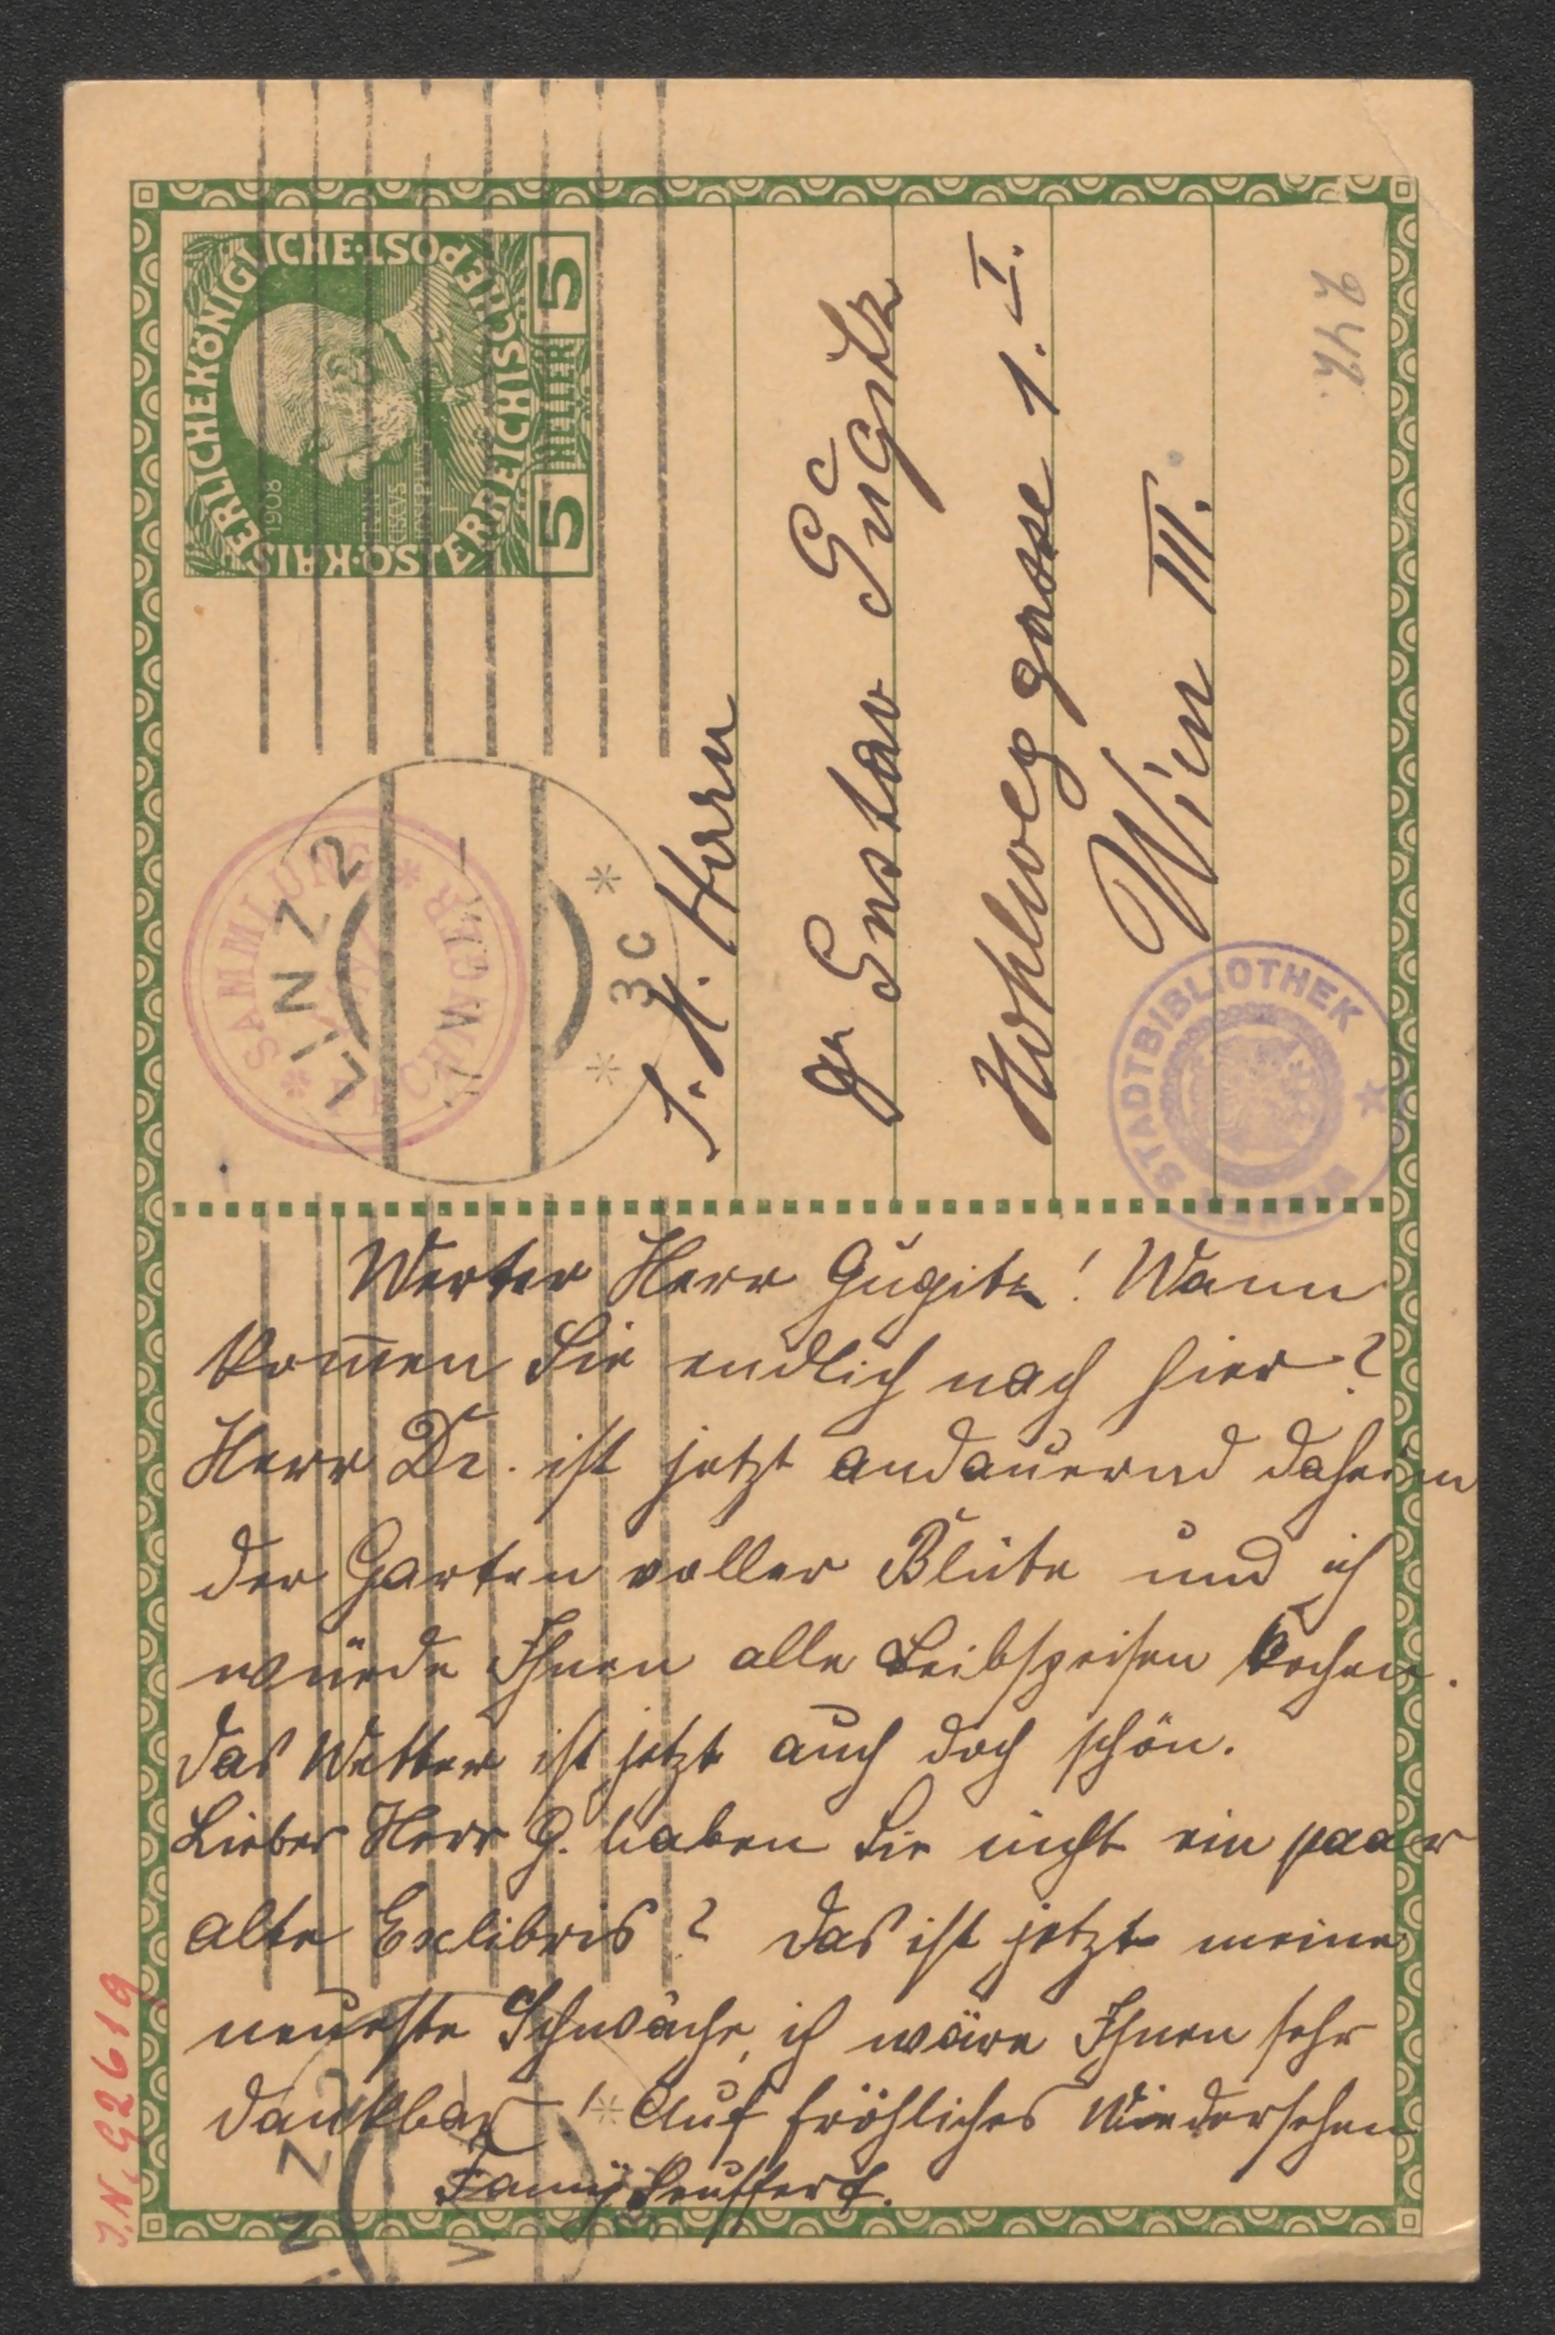 KAISERLICHEKÖNIGLICHE·ISO·POST
ÖSTERREICHISCHE
1908
5 HELLER 5
LINZ 2
V
3c
SAMMLUNG
S. H. Herrn
Gustav Gugitz
Hohlweggasse 1. I.
Wien III.
STADTBIBLIOTHEK
Werter Herr Gugitz! Wann
kom̅en Sie endlich nach hier?
Herr Dr. ist jetzt andauernd daheim
der Garten voller Blüte und ich
würde Ihnen alle Leibspeisen kochen.
Das Wetter ist jetzt auch doch schön.
Lieber Herr G. haben Sie nicht ein paar
alte Exlibris? Das ist jetzt meine
neueste Schwäche, ich wäre Ihnen sehr
dankbar! Auf fröhliches Wiedersehen
J.N. 92619